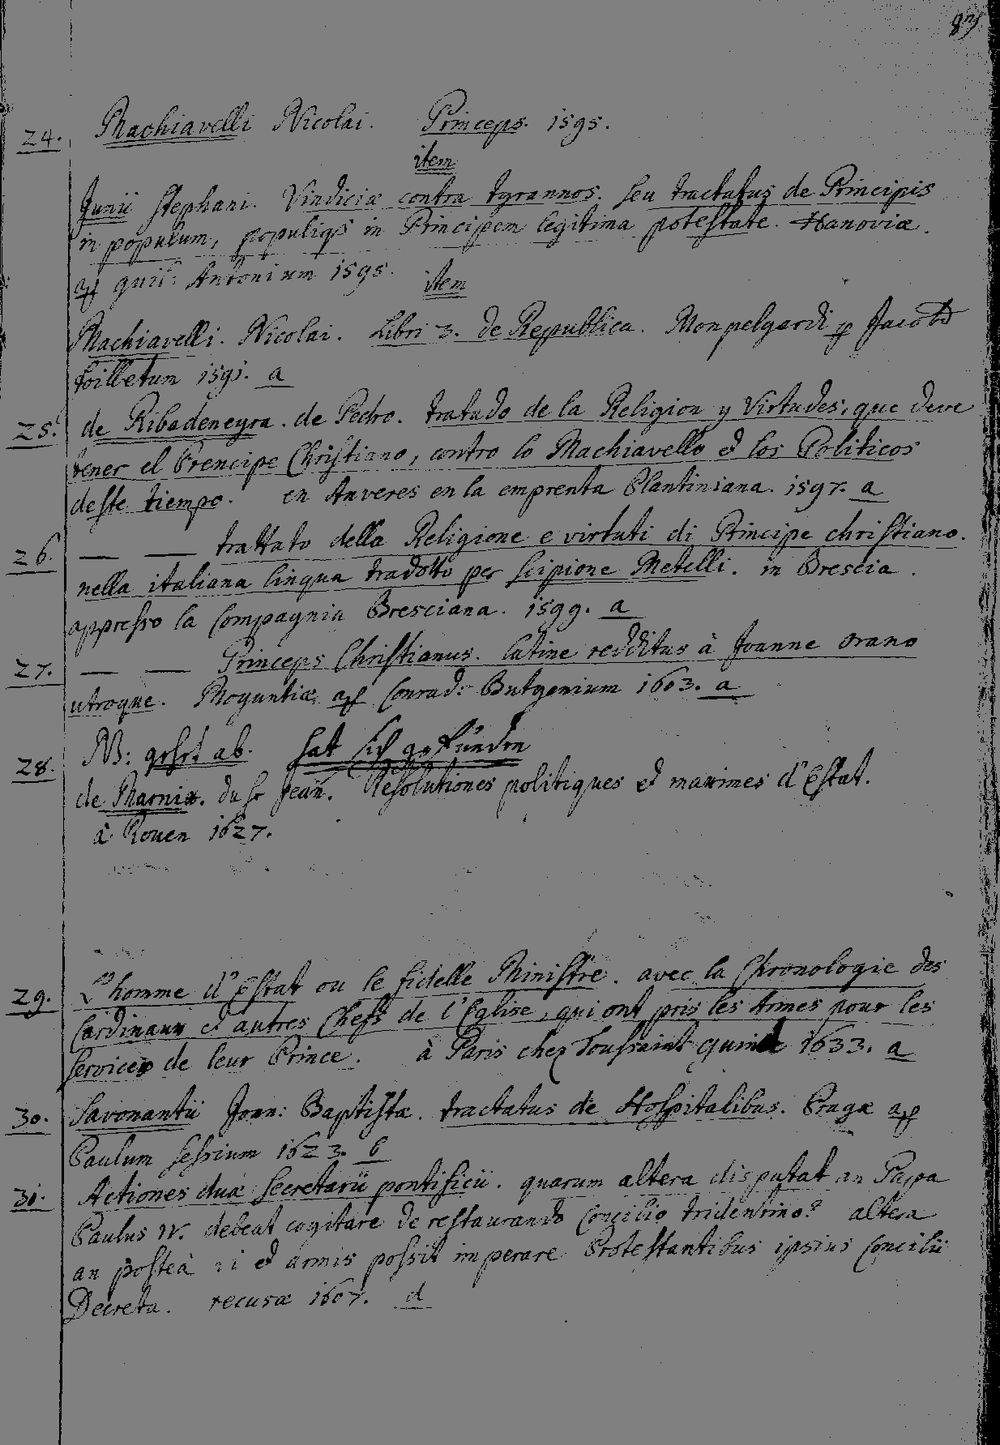 24. Machiavelli Nicolai. Princeps. 1595.
item
Junii Stephani. Vindiciæ contra tyrannos. seu tractatus de Principis
in populum, populiqs in Principem legitima potestate. Hanoviæ.
ap guil: Antonium 1595.
item
Machiavelli. Nicolai. Libri 3. de Republica. Monpelgardi p Jacobũ
foilletum 1591. a
25. de Ribadeneyra. de Pedro. tratado de la Religion y Virtudes, que deve
tener el Prencipe Christiano, contro lo Machiavello et los Politicos
deste tiempo. en Anveres en la emprenta Plantiniana. 1597. a
26. — — trattato della Religione e virtuti di Principe christiano.
nella italiana lingua tradotto per Scipione Metelli. in Brescia.
appresso la Compagnia Bresciana. 1599. a
27. — — Princeps Christianus. latine redditus à Joanne Orano
utroque. Moguntiæ ap Conrad: Butgenium 1603. a
28. NB: gehet ab. hat sich gefunden
de Marnix. du Sr Jean. Resolutiones politiques et maximes d'Estat.
à Rouen 1627.
29. L'homme d'Estat ou le fidelle Ministre. avec la Chronologie des
Cardinaux et autres Chefs de l'Eglise, qui ont pris les Armes pour les
services de leur Prince. à Paris chez Toussaint quinet 1633. a
30. Savonantii Joan: Baptistæ. tractatus de Hospitalibus. Pragæ ap
Paulum Sessium 1623. b
31. Actiones duæ Secretarii pontificii. quarum altera disputat an Papa
Paulus IV. debeat cogitare de restaurando Concilio tridentino? altera
an posteà vi et armis possit imperare Protestantibus ipsius Concilii
Decreta. recusæ 1607. d